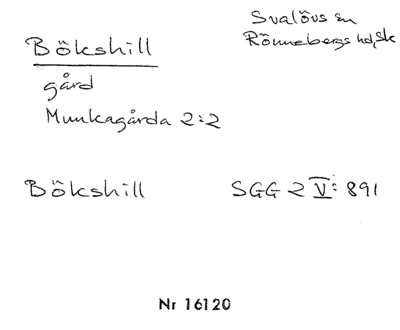 Svalövs sn
Rönnebergs hd, Sk
Bökshill
gård
Munkagårda 2:2
Bökshill SGG 2 V: 891
Nr 16120